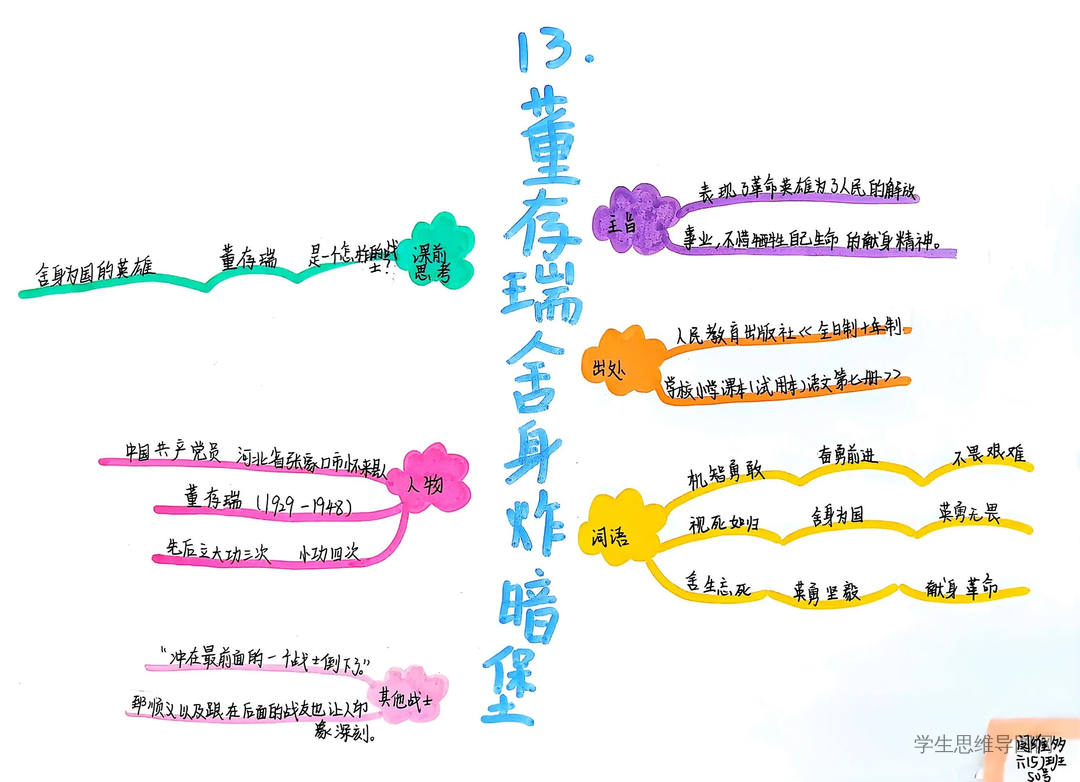 13.
董存瑞舍身炸暗堡
课前
思考
是一个怎样的战
士?
董存瑞
舍身为国的英雄
人物
中国共产党员 河北省张家口市怀来县人
董存瑞 (1929-1948)
先后立大功三次 小功四次
其他战士
"冲在最前面的一个战士倒下了。"
郅顺义以及跟在后面的战友也让人印
象深刻。
主旨
表现了革命英雄为了人民的解放
事业,不惜牺牲自己生命的献身精神。
出处
人民教育出版社<<全日制十年制
学校小学课本(试用本)语文第七册>>
词语
机智勇敢 奋勇前进 不畏艰难
视死如归 舍身为国 英勇无畏
舍生忘死 英勇坚毅 献身革命
学生思维导图
六15班
50号